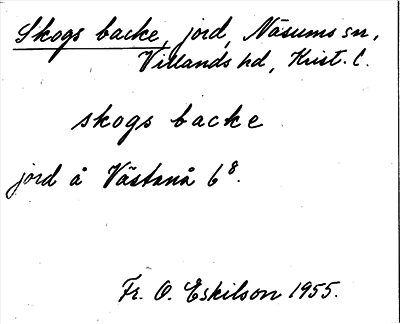 Skogs backe, jord, Näsums sn,
Villands hd, Krist. l.
skogs backe
jord å Västanå 6⁸.
Fr. O. Eskilson 1955.